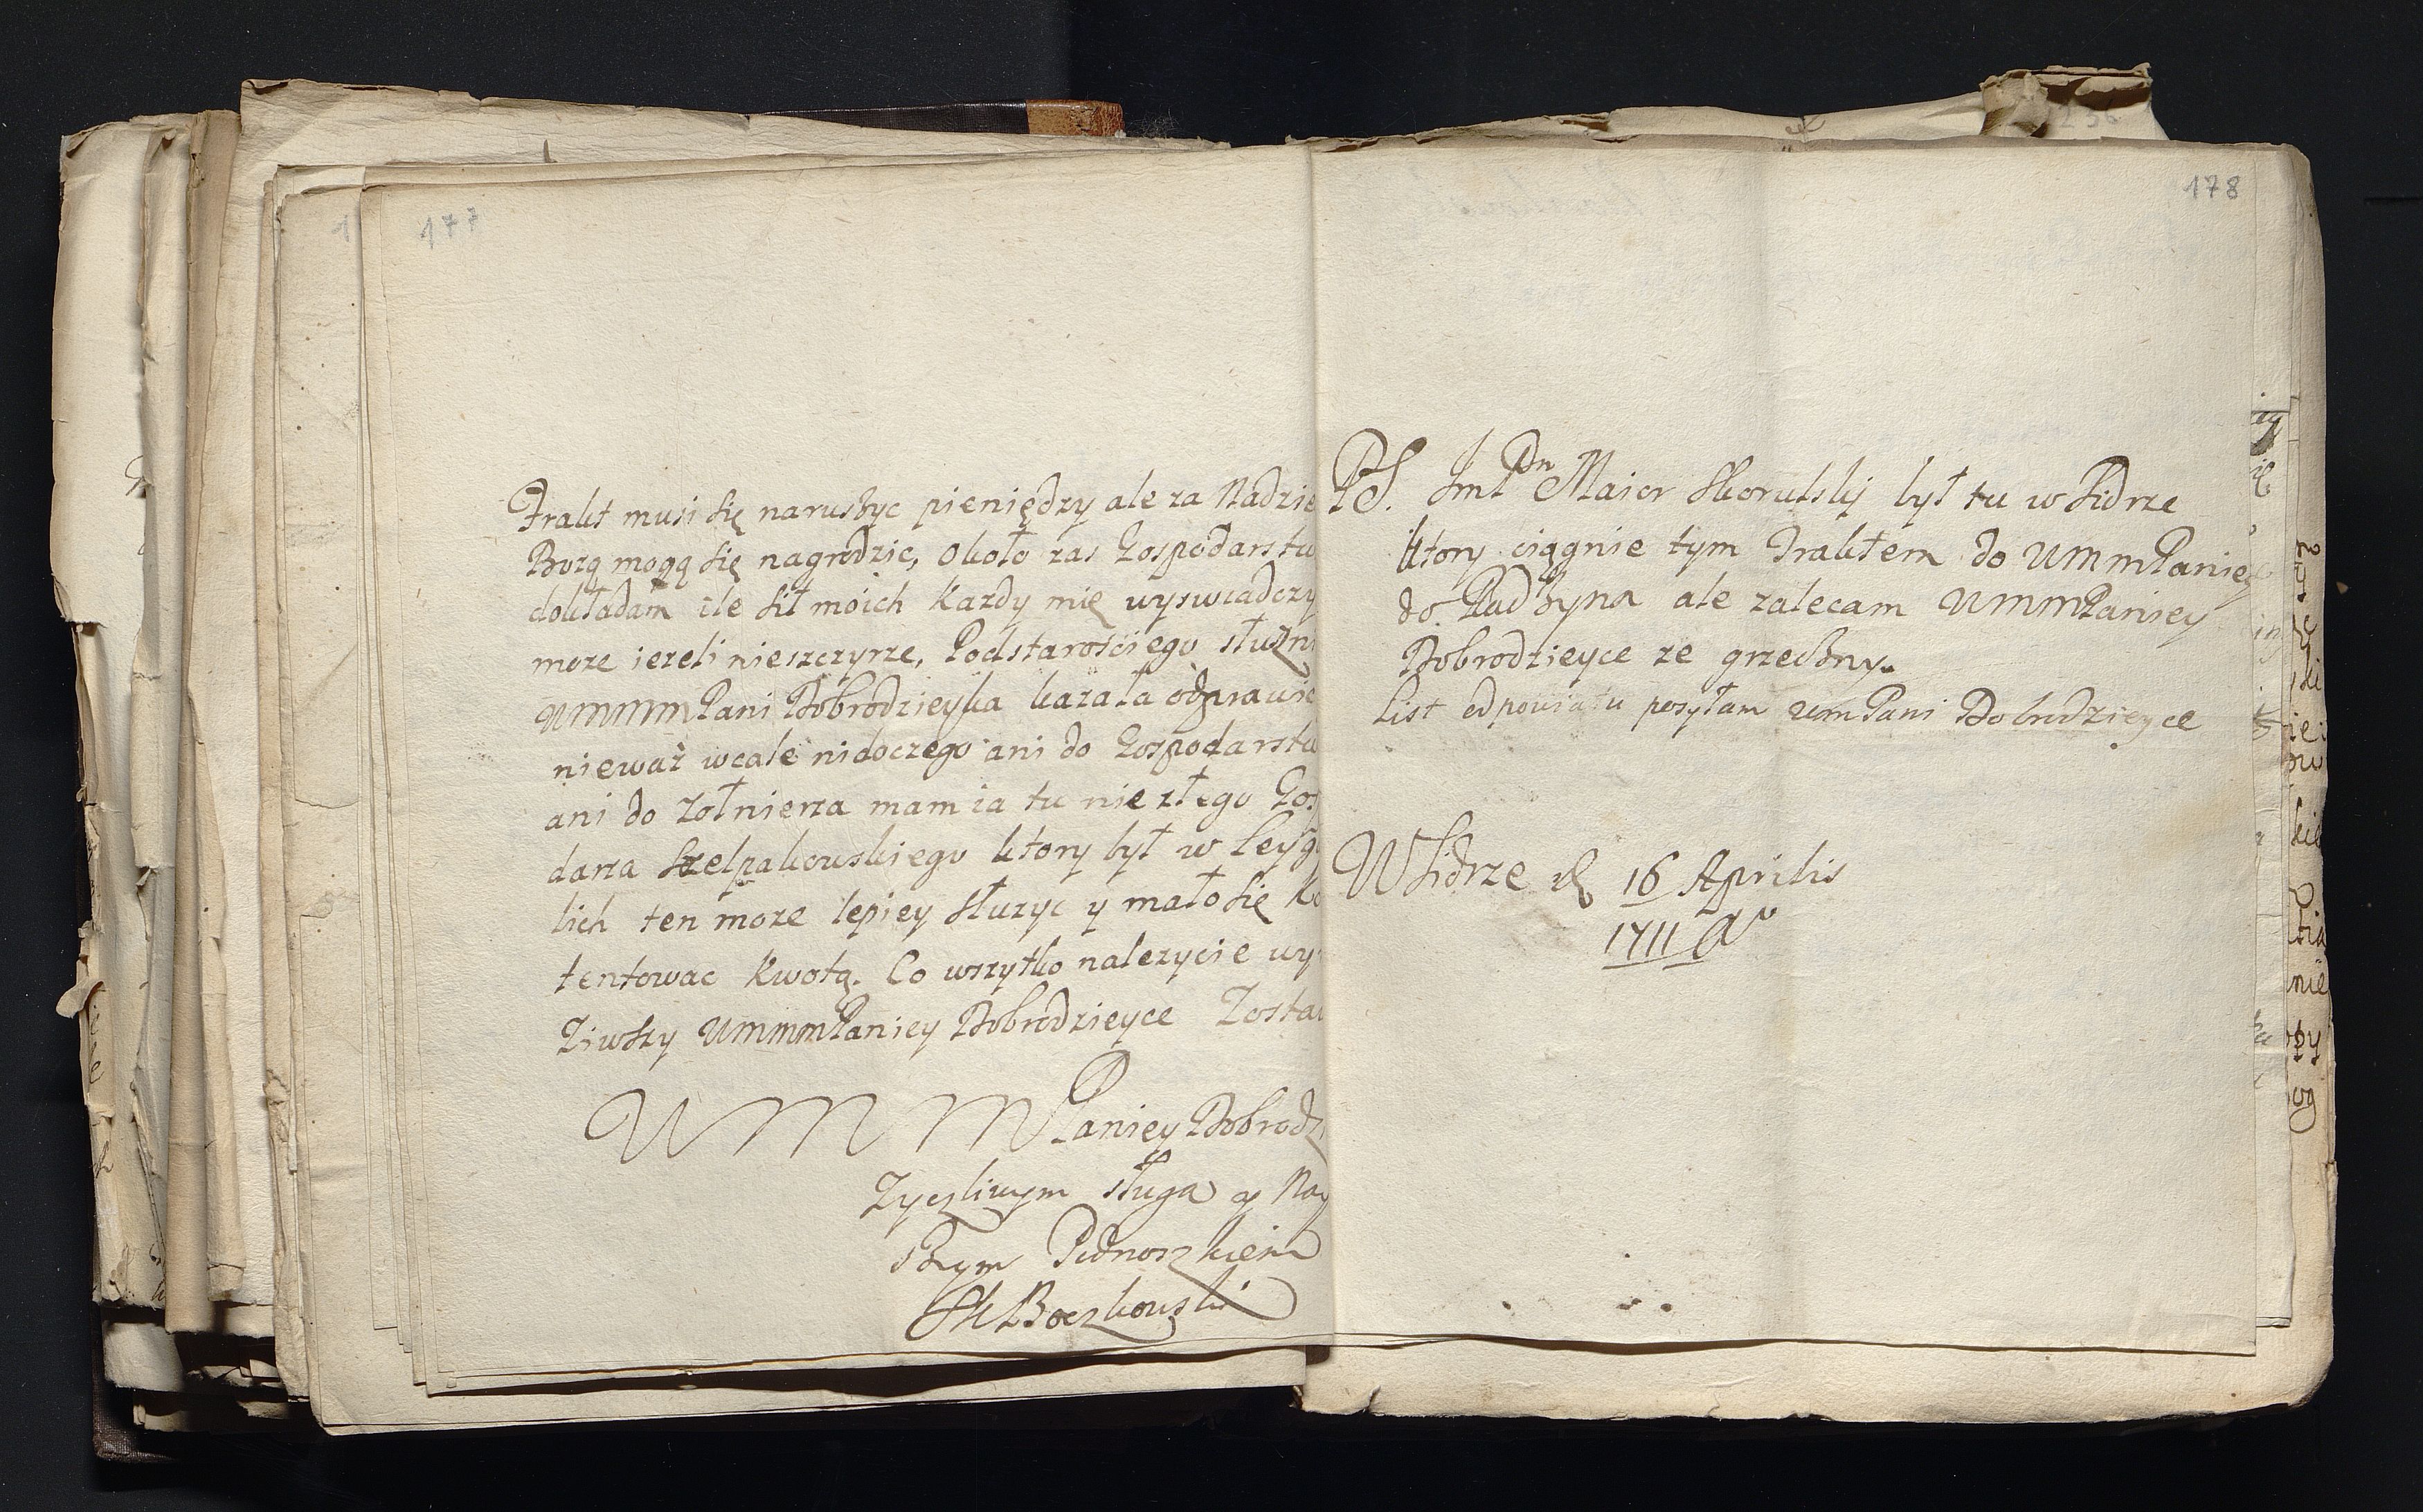 177
Trakt musi się naruszyc pieniędzy ale za Nadzie
Bozą mogą się nagrodzic, Około zas Gospodarstw
dokładam ile sił moich Kazdy mię wyswiadczy
moze iezeli nieszczyrze, Podstarosciego słuzn
UmmmPani Dobrodzieyka kazała odprawic
niewaz wcale nidoczego ani do Gospodarstw
ani do Zołnierza mam ia tu niezłego Gos
darza Szelpakowskiego ktory był w Leyg
lich ten moze lepiey słuzyc y mało się Ko
tentowac Kwotą. Co wszytko nalezycie wy
Ziwszy UmmmPaniey Dobrodzieyce Zosta
W M M Paniey Dobrodz
Zyczliwym sługa y Nay
szym Podnoszkiem
Boczkowski
178
PS. JmP Pn Maior Skorulski był tu w Sidrze
ktory ciągnie tym Traktem do UmmPaniey
do Radzyna ale zalecam UmmmPaniey
Dobrodzieyce ze grzeczny.
List od powiatu posyłam UmPani Dobrodzieyce
W Sidrze d 16 Aprilis
1711 Ao